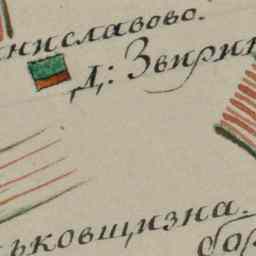 ниславово.
Д: Звирин
ьковщизна.